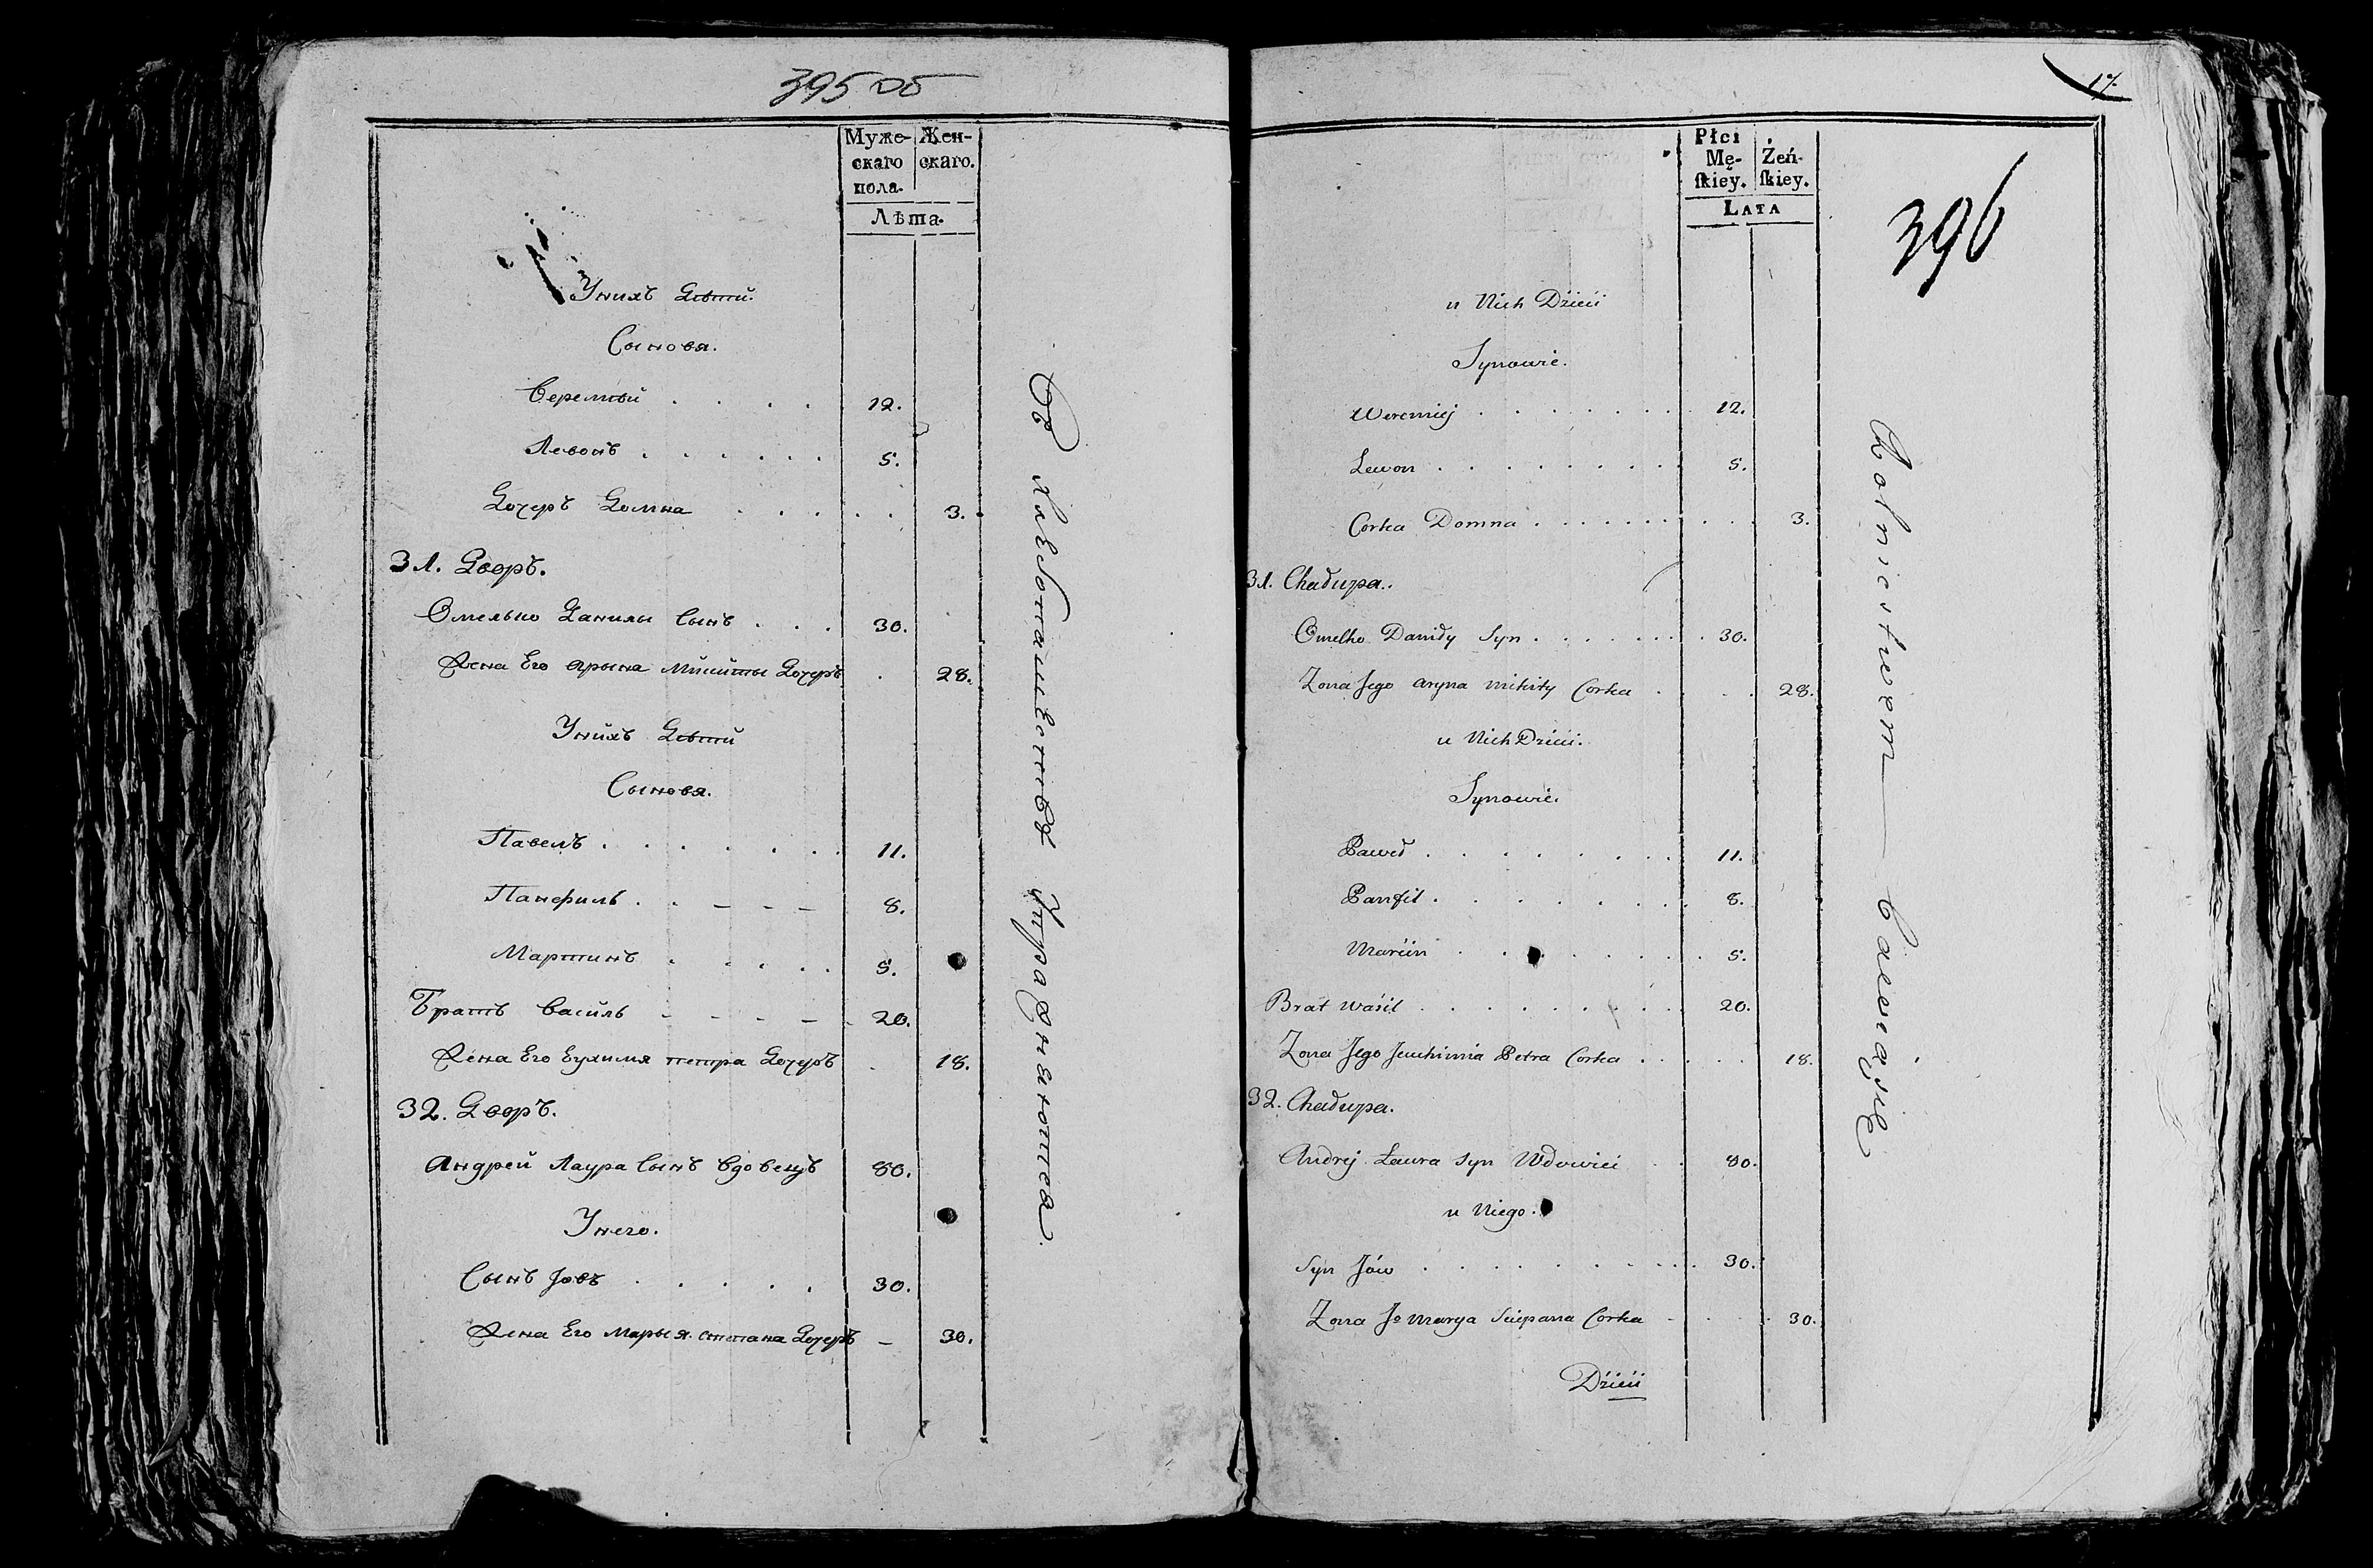 395 об
Муже- Жен-
скаго скаго.
пола.
Лѣта.
Унихъ Дѣтй.
Сыновя.
Веремѣй . . . . 12.
Левонъ . . . . . . 5.
Дочеръ Домна . . . . . 3.
31. Дворъ.
Омелько Данилы Сынъ . . . 30.
Жена Его Арына Мікиты Дочеръ . 28.
Унихъ Дѣтй
Сыновя.
Павелъ . . . . . . . 11.
Панфилъ . . - - - 8.
Мартинъ . . . . . 5.
Братъ Василь - - - - - 20.
Жена Его Еухимя петра Дочеръ . 18.
32. Дворъ.
Андрей Лаура Сынъ Вдовецъ 80.
Унего.
Сынъ Јовъ . . . . . 30.
Жена Его Марья степана Дочеръ - 30.
Въ хлебопашествѣ Упражняются.
17.
396
Płci
Mę- Żeń-
ſkiey. ſkiey.
LATA
u Nich Dzieci
Synowie.
Weremiej . . . . . . . 12.
Lewon . . . . . . . . 5.
Corka Domna . . . . . . . . . 3.
31. Chałupa.
Omelko Daniły Syn . . . . . . 30.
Zona Jego Aryna Mikity Corka . . . 28.
u Nich Dzieci.
Synowie.
Paweł . . . . . . . 11.
Panfil . . . . . . . 8.
Marcin . . . . . . . 5.
Brat Waśil . . . . . . . . 20.
Zona Jego Jeuchimia Petra Corka . . . . 18.
32. Chałupa.
Andrej Ławra Syn Wdowiec . . 80.
u Niego.
Syn Jów . . . . . . . . 30.
Zona Jo Marya Sciepana Corka - . . . 30.
Dzieci
Rolnictwem bawią się